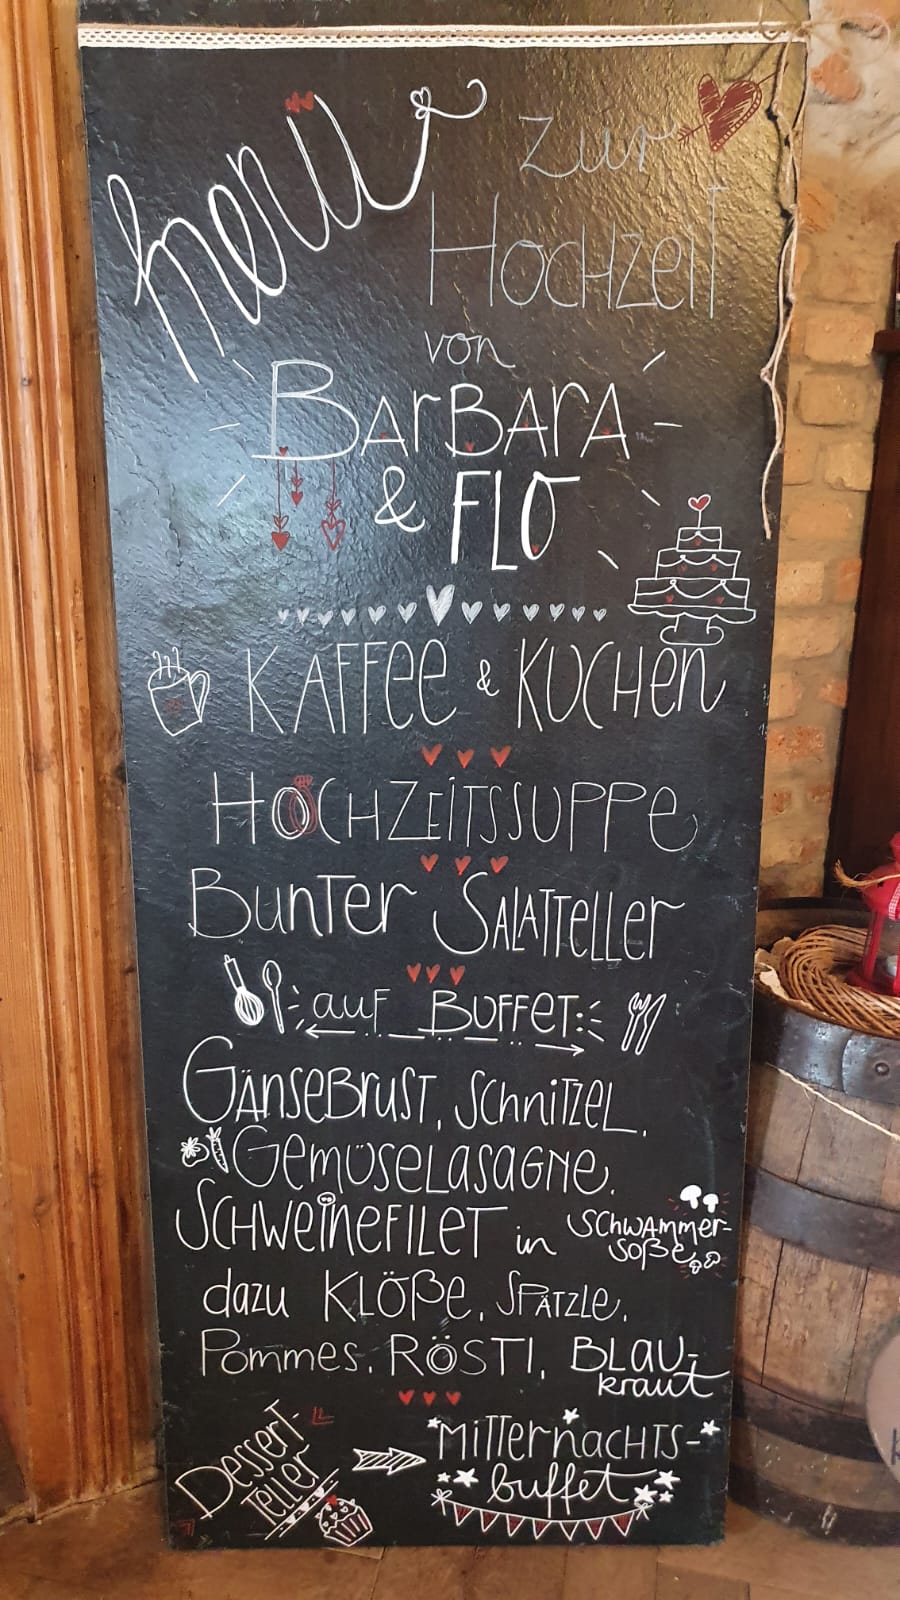 Menü
zur
Hochzeit
von
Barbara
& Flo
Kaffee & Kuchen
Hochzeitssuppe
Bunter Salatteller
auf Buffet:
Gänsebrust, Schnitzel,
Gemüselasagne,
Schweinefilet in Schwammer-
soße,
dazu Klöße, Spätzle,
Pommes, Rösti, Blau-
kraut
Dessert-
teller
Mitternachts-
buffet